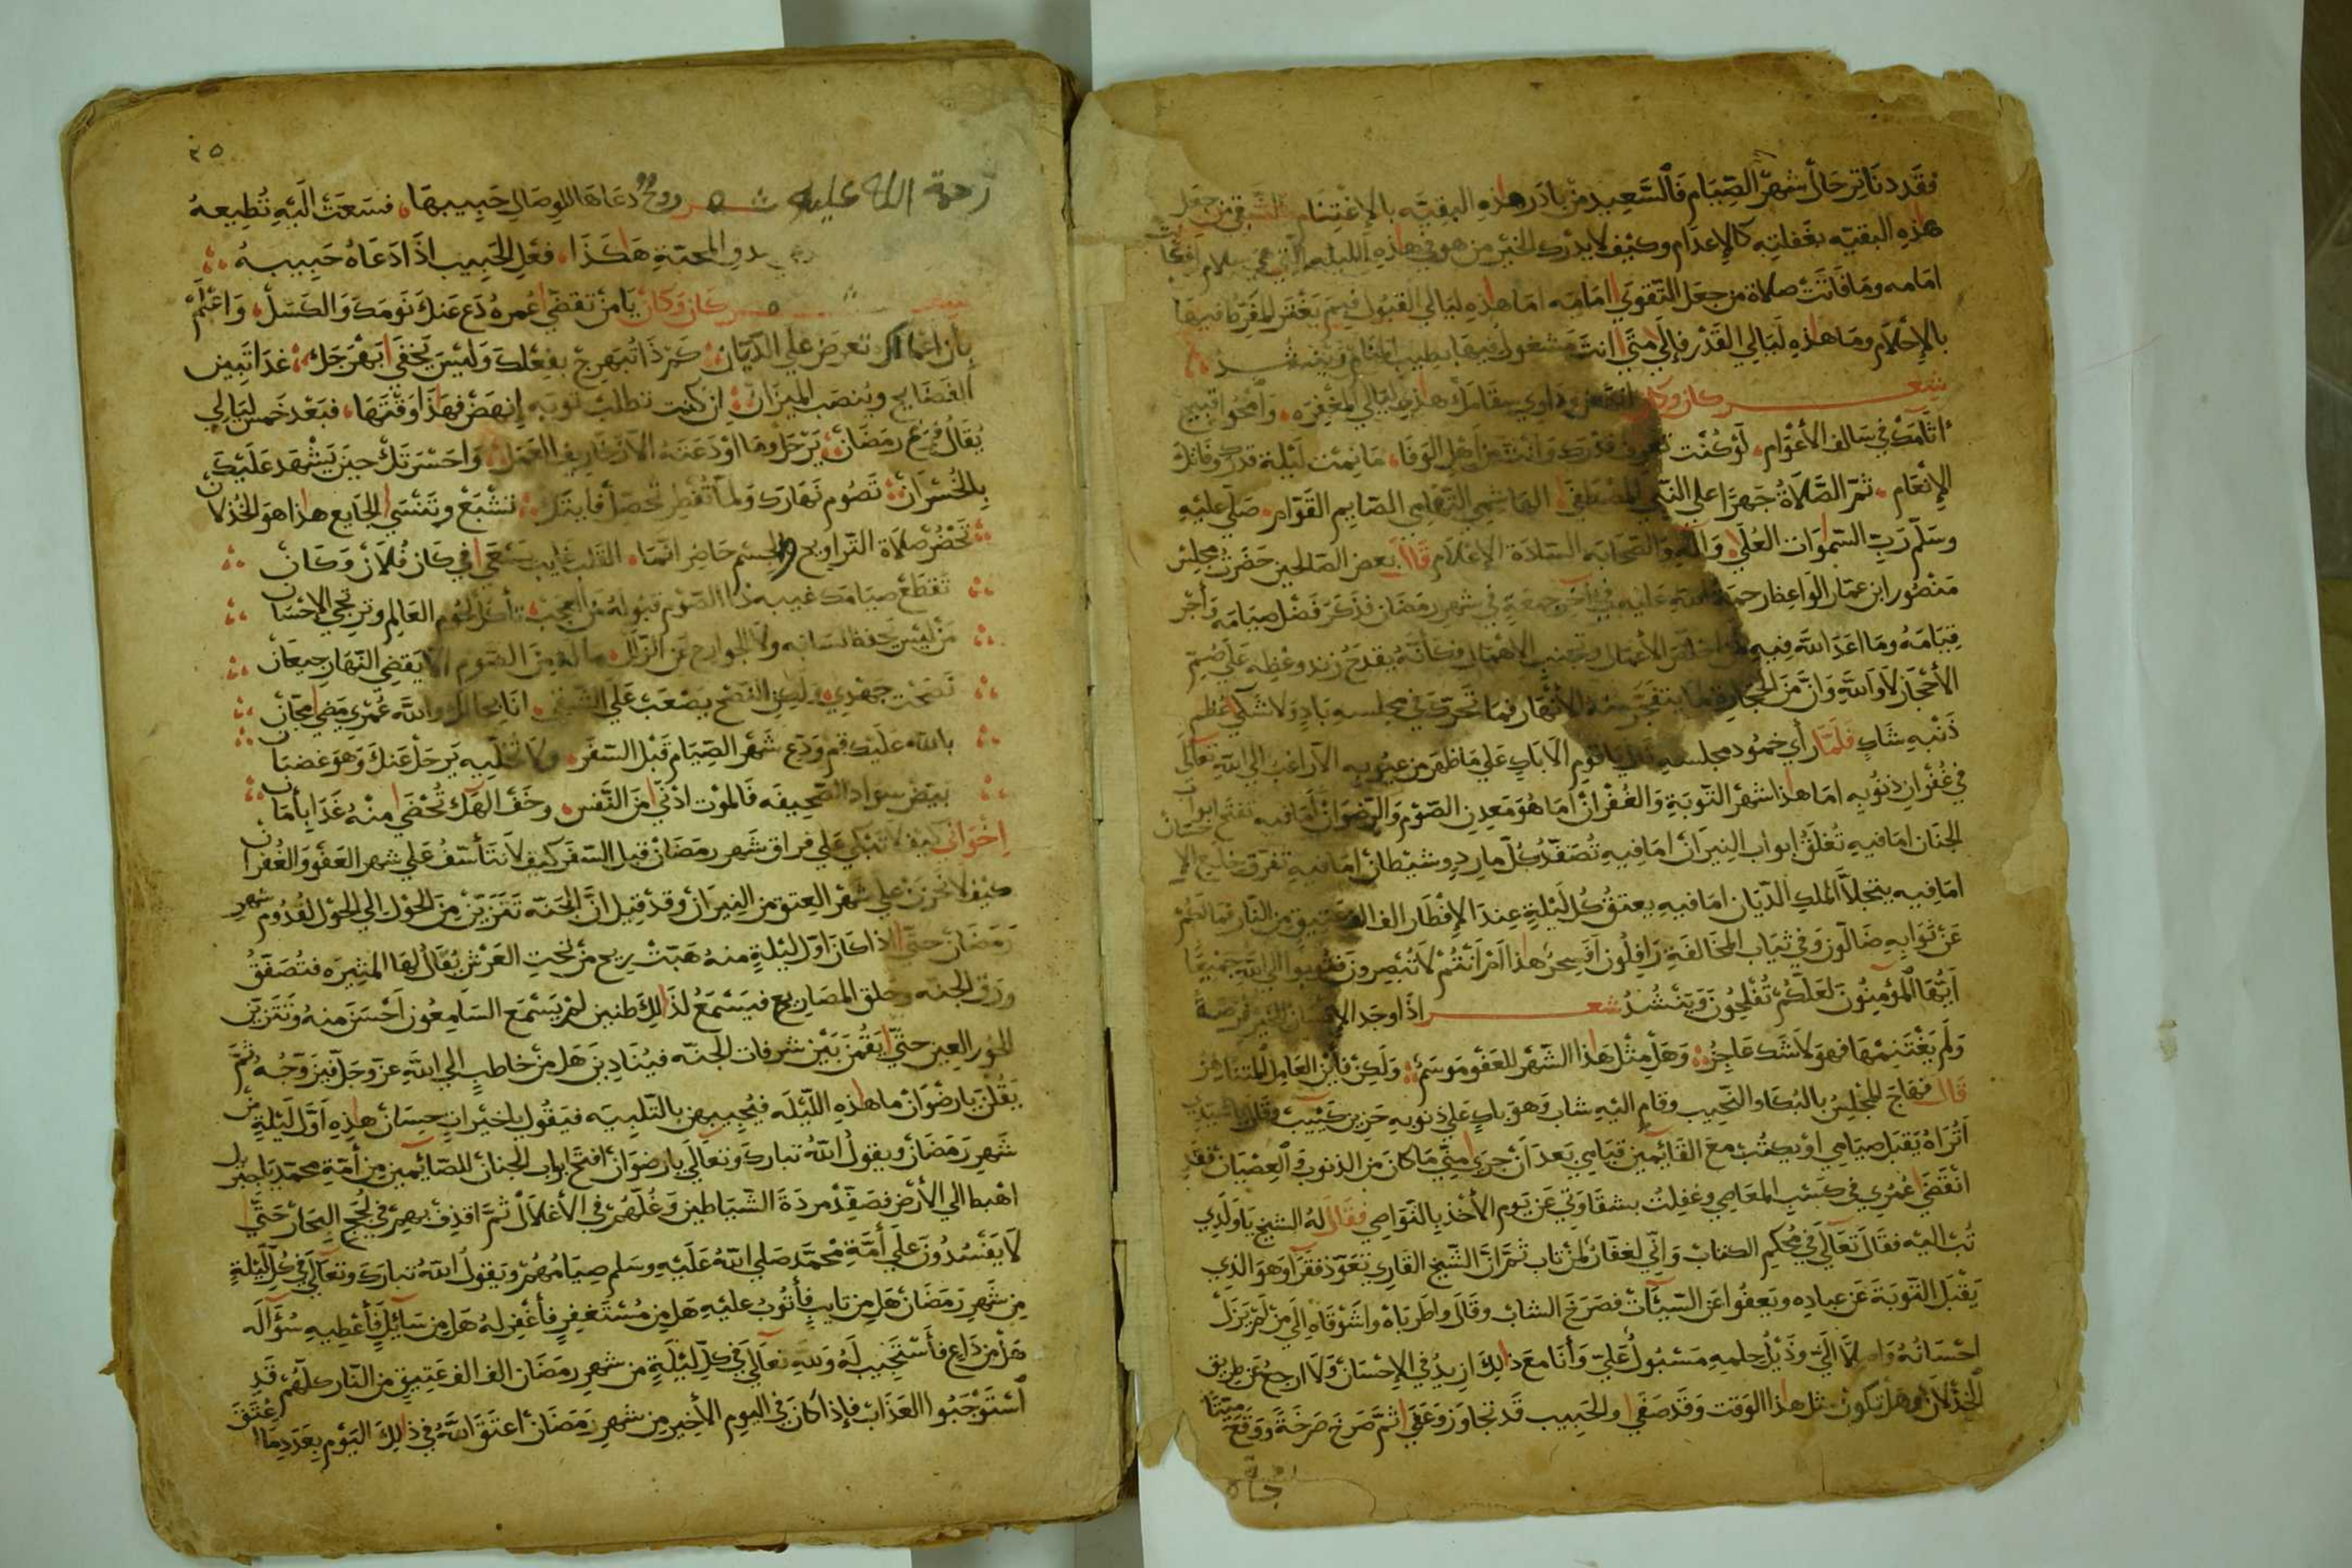 فقد دنا ترحال شهر الصيام فالسعيد من بادر هذه البقيه بالإغتنام والشقي من جعل
هذه البقيه بغفلته كالإعدام وكيف لا يدرك الخير من هو في هذه الليله
امامه وما فاتت صلاة من جعل التقوي امامه اما هذه ليالي القبول فيهم يغفر للمفرط فيها
بالإحلام وما هذه ليالي القدر فإلي متي انت مشغول فيها بطيب المنام وينشد
شعر كان وكان هذه ليالي المغفره وامحوا قبيح
اثامك في سالف الأعوام لو كنت تعرف قدرك وانت من اهل الوفا ما نمت ليلة قدرك وفاتك
الإنعام ثم الصلاة جهرا علي النبي المصطفي الهاشمي التهامي الصايم القوام صلي عليه
وسلم رب السموات العلي واله والصحابه السادة الإعلام قال بعض الصالحين حضرت مجلس
منصور ابن عمار الواعظ رحمة الله عليه في اخر جمعة في شهر رمضان فذكر فضل صيامه واجر
قيامه وما اعد الله فيه لمن اخلص الأعمال وتجنب الإهمال فكأنه يقدح زند وعظه علي صم
الأحجار لا والله وان من الحجارة لما يتفجر منه الأنهار فما تحرك في مجلسه باد ولا شكي عظم
ذنبه شاك فلما رأي خمود مجلسه قال يا قوم الا باك علي ما ظهر من عيوبه الا راغب الي الله تعالي
في غفران ذنوبه اما هذا شهر التوبة والغفران اما هو معدن الصوم والرضوان اما فيه تفتح ابواب
الجنان اما فيه تغلق ابواب النيران اما فيه تصفد كل مارد وشيطان اما فيه تفرق خلع الإحسان
اما فيه يتجلا الملك الديان اما فيه يعتق كل ليلة عند الإفطار الف الف عتيق من النار فما لكم
عن ثوابه ضالون وفي ثياب المخالفة رافلون افسحر هذا ام انتم لا تبصرون فتوبوا الي الله جميعا
ايها المؤمنون لعلكم تفلحون وينشد شعر اذا وجد الإنسان للخير فرصة
ولم يغتنمها فهو لا شك عاجز وهل مثل هذا الشهر للعفو موسم ولكن فاين العامل المتناهز
قال فهاج المجلس بالبكاء والنحيب وقام اليه شاب وهو باك علي ذنوبه حزين كييب وقال يا سيدي
اتراه يقبل صيامي او يكتب مع القائمين قيامي بعد ان جري مني ما كان من الذنوب والعصيان فقد
انقضا عمري في كسب المعاصي وغفلت بشقاوتي عن يوم الأخذ بالنواصي فقال له الشيخ يا ولدي
تب اليه فقال تعالي في محكم الكتاب واني لغفار لمن تاب ثم ان الشيخ القاري تعوذ فقرا وهو الذي
يقبل التوبة عن عباده ويعفوا عن السيئات فصرخ الشاب وقال واطرباه واشوقاه الي من لم يزل
احسانه واصلا الي وذيل حلمه مسبول علي وأنا مع ذلك ازيد في الإحسان ولا ارجع عن طريق
الخذلان وهل تكون مثل هذا الوقت وقد صفي والحبيب قد تجاوز وعفي ثم صرخ صرخة ووقع ميتا
٢٥
رحمة الله عليه شعر روح دعاها للوصال حبيبها فسعت اليه تطيعه
المحبة هكذا فعل الحبيب اذا دعاه حبيبه
كان وكان يا من تقضي عمره دع عنك نومك والكسل واعلم
بان اعمالك تعرض علي الديان كم ذا تبهرج بفعلك وليس يخفي ابهرجك غدا تبين
الفضايح وينصب الميزان ان كنت تطلب توبه إنهض فهذا وقتها فبعد خمس ليالي
يقال فرغ رمضان يرحل وما اودعته واحسرتك حين يشهد عليك
بالخسران تصوم نهارك ولما تفطر تشبع وتنسي الجايع هذا هو الخذلان
تحضر صلاة التراويح والجسم حاضر انما القلب غايب يسعي في كان فلان وكان
تقطع صيامك غيبه ذا الصوم قبوله من العجب تأكل لحوم العالم وترتجي الإحسان
من ليس يحفظ لسانه ولا الجوارح عن الزلل ما له من الصوم الا يقضي النهار جيعان
نصحت جهدي ولكن النصح يصعب علي الشقي والله عمري مضي مجان
بالله عليك قم ودع شهر الصيام قبل السفر ولا تخليه يرحل عنك وهو غضبان
بيض سواد الصحيفه فالموت ادني من النفس وخف الهك تحضي منه غدا بأمان
اخواني كيف لا تبكي علي فراق شهر رمضان قبل السفر كيف لا تتأسف علي شهر العفو والغفران
كيف لا تحزن علي شهر العتق من النيران وقد قيل ان الجنه تتزين من الحول الي الحول لقدوم شهر
رمضان حتي اذا كان اول ليلة منه هبت ريح من تحت العرش يقال لها المثيره فتصفق
ورق الجنه وحلق المصاريع فيسمع لذلك طنين لم يسمع السامعون احسن منه وتتزين
الحور العين حتي يقمن بين شرفات الجنه فينادين هل من خاطب الي الله عز وجل فيزوجه ثم
يقلن يا رضوان ما هذه الليله فيجيبهن بالتلبيه فيقول يا خيرات حسان هذه اول ليلة من
شهر رمضان ويقول الله تبارك وتعالي يا رضوان افتح ابواب الجنان للصائمين من أمة محمد يا جبريل
اهبط الي الأرض فصفد مردة الشياطين وغلهم في الأغلال ثم اقذف بهم في لجج البحار حتي
لا يفسدون علي أمة محمد صلي الله عليه وسلم صيامهم ويقول الله تبارك وتعالي في كل ليلة
من شهر رمضان هل من تايب فأتوب عليه هل من مستغفر فأغفر له هل من سائل فأعطيه سؤاله
هل من داع فأستجيب له ولله تعالي في كل ليلة من شهر رمضان الف الف عتيق من النار كلهم قد
استوجبوا العذاب فإذا كان في اليوم الأخير من شهر رمضان اعتق الله في ذلك اليوم بعدد ما اعتق